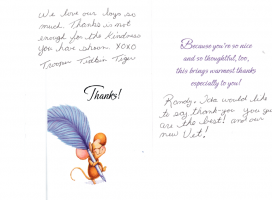 We love our toys so
much. Thanks is not
enough for the kindness
you have shown XOXO
Tiger
Thanks!
Because you're so nice
and so thoughtful, too,
this brings warmest thanks
especially to you!
Randy, Ida would like
to say thank-you you guys
are the best! and our
new Vet!